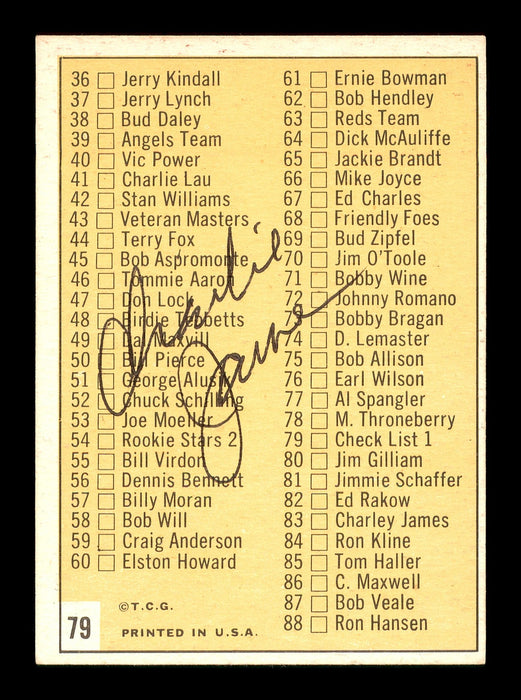 36 Jerry Kindall
37 Jerry Lynch
38 Bud Daley
39 Angels Team
40 Vic Power
41 Charlie Lau
42 Stan Williams
43 Veteran Masters
44 Terry Fox
45 Bob Aspromonte
46 Tommie Aaron
47 Don Lock
48 Birdie Tebbetts
49 Dal Maxvill
50 Bill Pierce
51 George Alusik
52 Chuck Schilling
53 Joe Moeller
54 Rookie Stars 2
55 Bill Virdon
56 Dennis Bennett
57 Billy Moran
58 Bob Will
59 Craig Anderson
60 Elston Howard
61 Ernie Bowman
62 Bob Hendley
63 Reds Team
64 Dick McAuliffe
65 Jackie Brandt
66 Mike Joyce
67 Ed Charles
68 Friendly Foes
69 Bud Zipfel
70 Jim O'Toole
71 Bobby Wine
72 Johnny Romano
73 Bobby Bragan
74 D. Lemaster
75 Bob Allison
76 Earl Wilson
77 Al Spangler
78 M. Throneberry
79 Check List 1
80 Jim Gilliam
81 Jimmie Schaffer
82 Ed Rakow
83 Charley James
84 Ron Kline
85 Tom Haller
86 C. Maxwell
87 Bob Veale
88 Ron Hansen
©T.C.G.
PRINTED IN U.S.A.
79
Charlie James